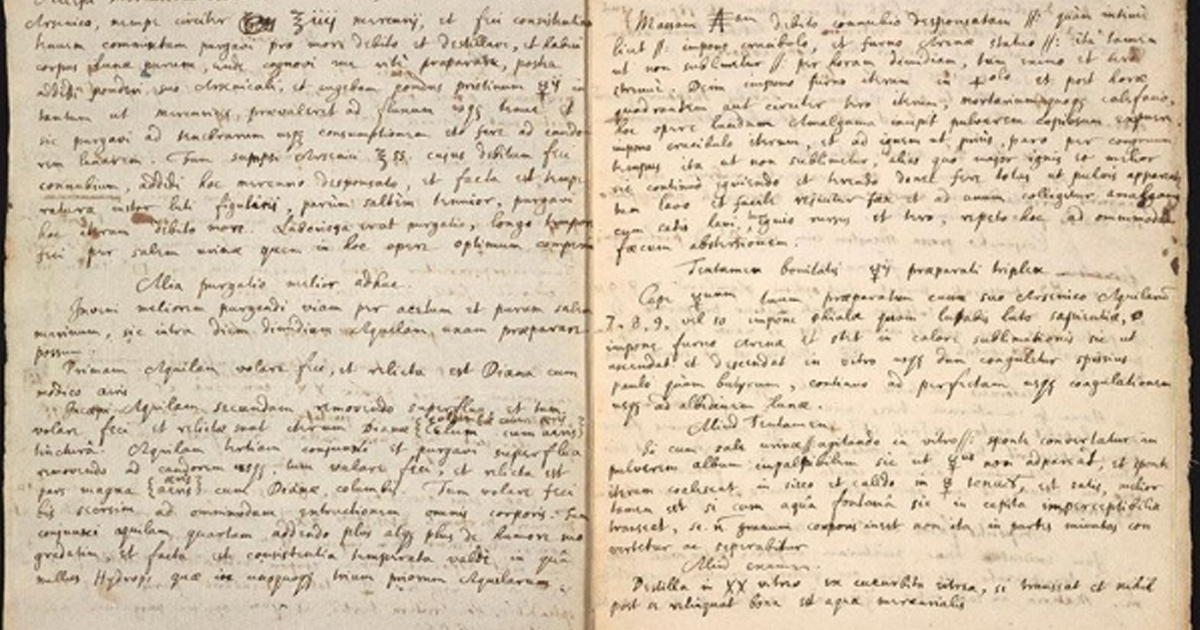 Arsenico, nempe circiter ℥ iiij mercurij, et feci consistentiam
tenuem commixtam purgavi pro more debito et destillavi, et habui
corpus Lunæ purum, unde cognovi me rite præparasse, postea
addidi ponderi suo Arsenicali, et augebam pondus pristinum ☿ij in
tantum ut mercurius prævaleret ad
sic purgavi ad tenebrarum usqꝫ consumptionem etc fere ad cando
rem lunarem. Tum sumpsi Arsenici ℥ ss. cujus debitum feci
connubium, addidi hoc mercurio desponsato, et facta est tempe
ratura instar luti figulini, parum saltem tenuior, purgavi
hoc iterum debito more. Laboriosa erat purgatio, longo tempore
feci per salem urinæ quem in hoc opere optimum comperi
Alia purgatio melior adhuc.
Inveni meliorem purgandi viam per acetum et purum salem
marinum, sic intra diem dimidiam Aquilam unam præparare
possum.
Primam Aquilam volare feci, et relicta est Diana cum
modico æris
Incepi Aquilam secundam removendo superflua, et tum
volare feci et relictæ sunt iterum Dianæ columbæ cum æris
tinctura. Aquilam tertiam conjunxi et purgavi superflua
removendo ad candorem usqꝫ, tum volare feci, et relicta est
pars magna æris cum Dianæ columbis. Tum volare feci
bis seorsim ad omnimodam extractionem omnis corporis. Tum
conjunxi aquilam quartam addendo plus atqꝫ plus de humore suo
gradatim, et facta est consistentia temperata valde in qua
nullus Hydrops quæ in trium priorum Aquilarum
Massam debito connubio desponsatam quàm intimè
licet impone crucibulo, et furno Arenæ statuo ita tamen
ut non sublimetur per horam dimidiam, tum eximo et tero
strenuè. Dein impono furno iterum in ☿olo et post horæ
quadrantem aut circiter tero iterum, mortarium quoqꝫ calefacio,
hoc opere tandem Amalgama incipit pulverem expuere.
impono crucibulo iterum, et ad ignem ut priùs, paro per congruum
tempus ita ut non sublimetur, alias quo major ignis eo melior
sic continuo igniendo et terendo donec fere totus ut pulvis appareat
tum lavo et facile rejicitur fæx et ad unum colligitur amalgama
cum satis lavi, ignio rursus et tero, repeto hoc ad omnimodam
fæcum abstersionem.
Tentamen bonitatis ☿ij præparati triplex
Cape ☿rium tuum præparatum cum suo Arsenico Aquilarum
7. 8. 9. vel 10 impone phialæ quam lutabis luto sapientiæ,
impone furno arenæ et stet in calore sublimationis sic ut
ascendat et descendat in vitro usqꝫ dum coaguletur spissius
paulo quàm butyrum, continuo ad perfectam usqꝫ coagulationem
usqꝫ ad albedinem Lunæ.
Aliud Tentamen
Si cum sale urinæ agitando in vitro sponte convertatur in
pulverem album impalpabilem sic ut ☿us non adpareat, et sponte
iterum coalescat in sicco et calido in ☿ tenuem, est satis, melior
tamen est si cum aqua fontana sic in capita imperceptibilia
transeat, se. ñ granum corporis inest non ita in partes minutas con
vertetur ac separabitur
Aliud examen.
Destilla in vitro ex cucurbita vitrea, si transeat et nihil
post se relinquat bona est aqua mercurialis